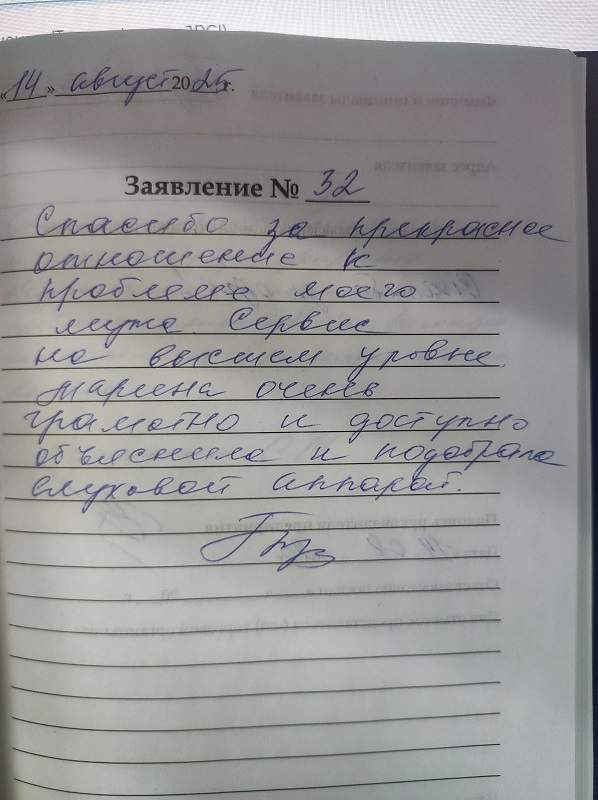 «14» август 2025г.
Заявление № 32
Спасибо за прекрасное
отношение к
проблеме моего
мужа. Сервис
на высшем уровне.
Марина очень
грамотно и доступно
объяснила и подобрала
слуховой аппарат.